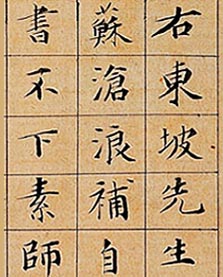 右東坡先生
蘇滄浪補自
書不下素師